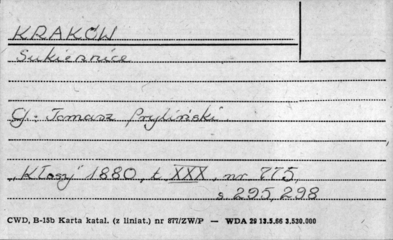 KRAKÓW
Sukiennice
Cf: Tomasz Pryliński.
„Kłosy" 1880, t. XXX, nr 775,
s 295, 298
CWD, B-15b Karta katal. (z liniat.) nr 877/ZW/P — WDA 29 13.5.66 3.530.000